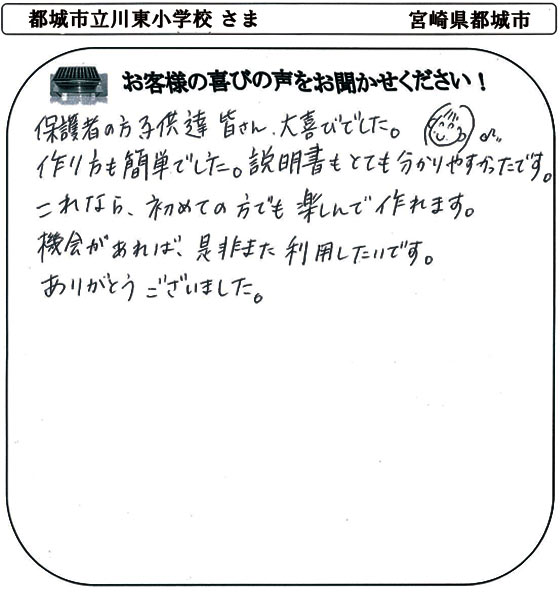 都城市立川東小学校 さま 宮崎県都城市
お客様の喜びの声をお聞かせください！
保護者の方子供達 皆さん、大喜びでした。
作り方も簡単でした。説明書もとても分かりやすかったです。
これなら、初めての方でも 楽しんで作れます。
機会があれば、是非また 利用したいです。
ありがとう ございました。